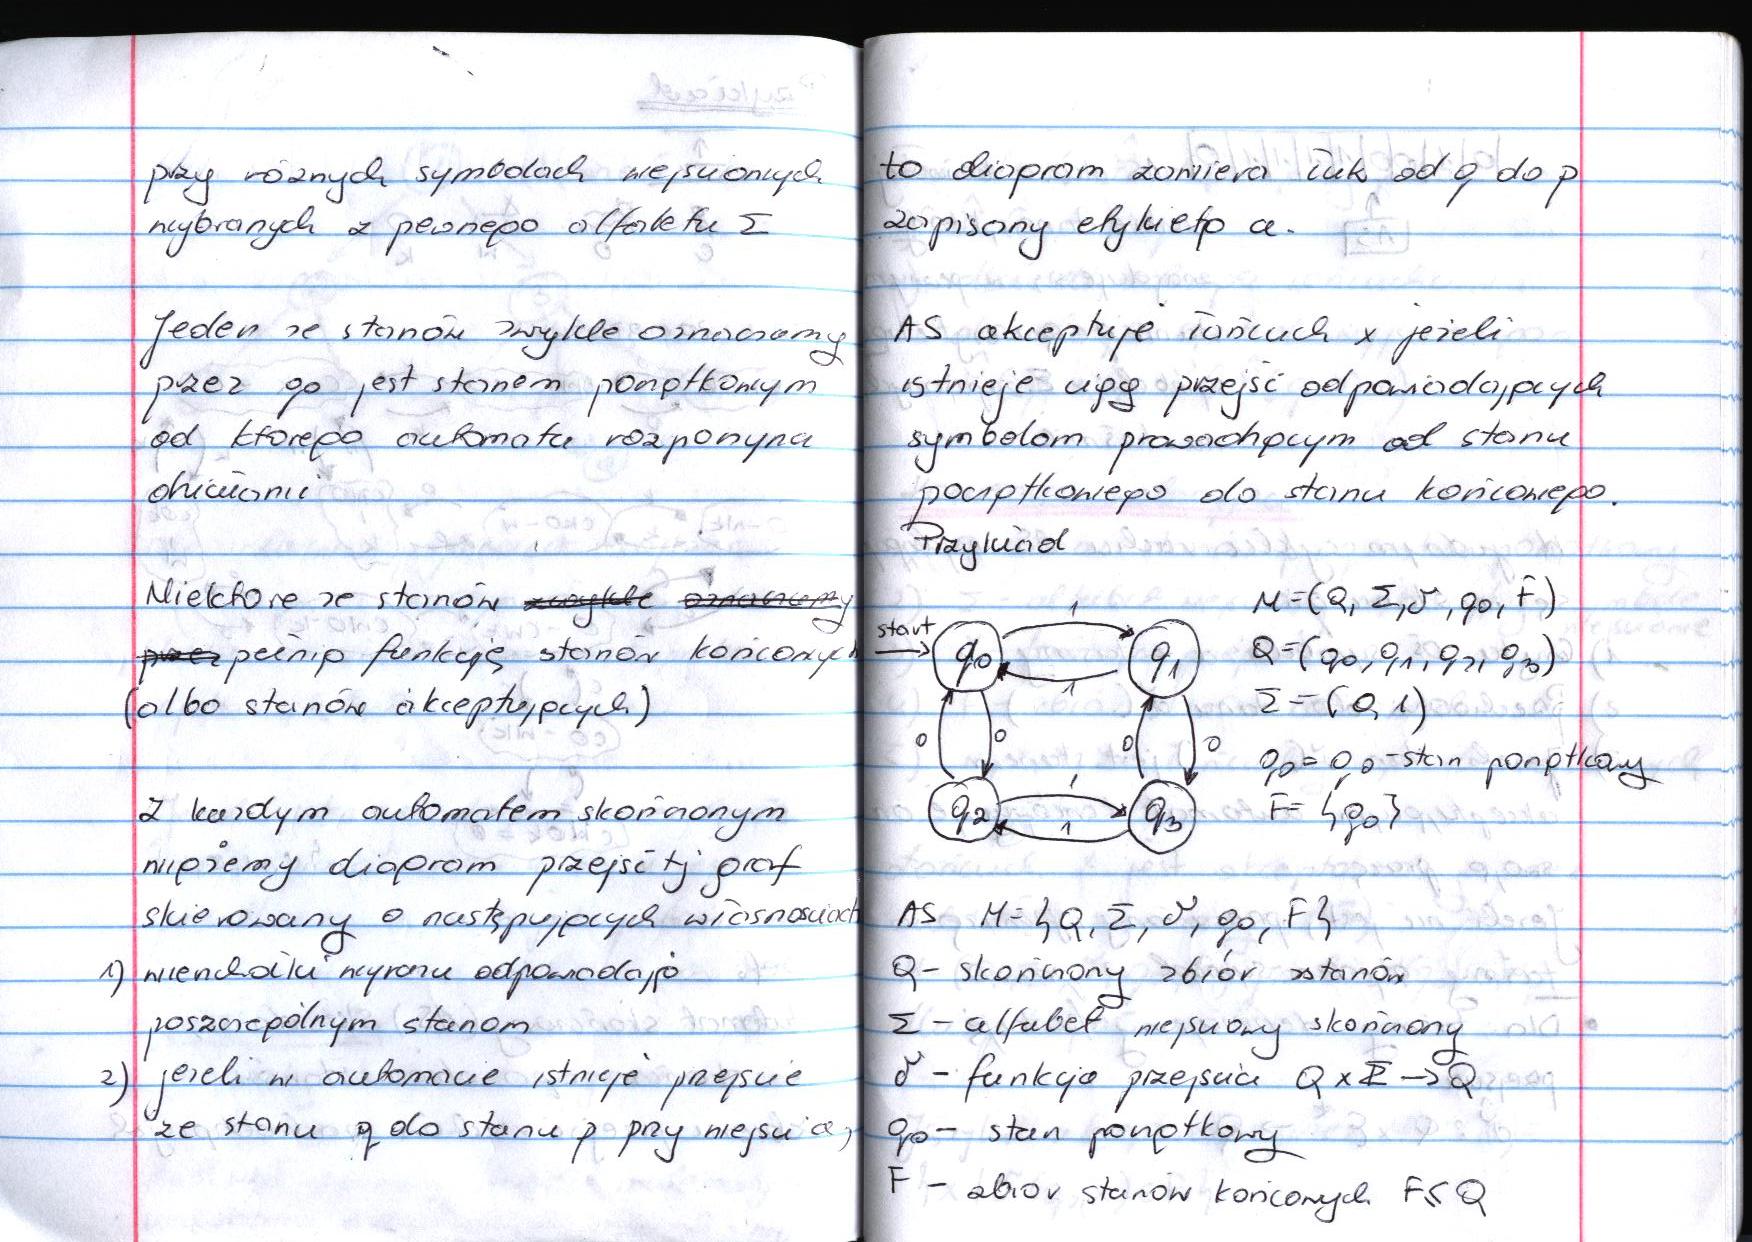 przy różnych symbolach wejściowych
wybranych z pewnego alfabetu Σ
Jeden ze stanów zwykle oznaczamy
przez q0 jest stanem początkowym
od którego automata rozpoczyna
działanie
Niektóre ze stanów zwykle oznaczamy
przez pełnią funkcję stanów końcowych
(albo stanów akceptujących)
Z każdym automatem skończonym
wiążemy diagram przejść tj graf
skierowany o następujących własnościach
1) wierzchołki wyrazu odpowiadają
poszczególnym stanom
2) jeżeli w automacie istnieje przejście
ze stanu q do stanu p przy wejściu a,
to diagram zawiera łuk od q do p
zapisany etykietą a.
AS akceptuje łańcuch x jeżeli
istnieje ciąg przejść odpowiadających
symbolom prowadzącym od stanu
początkowego do stanu końcowego.
Przykład
M=(Q, Σ, δ, q0, F)
start q0 1 1 q1
Q=(q0, q1, q2, q3)
Σ=(0, 1)
0 0 0 0
q0=q0 - stan początkowy
q2 1 1 q3
F={q0}
AS M={Q, Σ, δ, q0, F}
Q - skończony zbiór stanów
Σ - alfabet wejściowy skończony
δ - funkcja przejścia Q x Σ → Q
q0 - stan początkowy
F - zbiór stanów końcowych F ⊆ Q